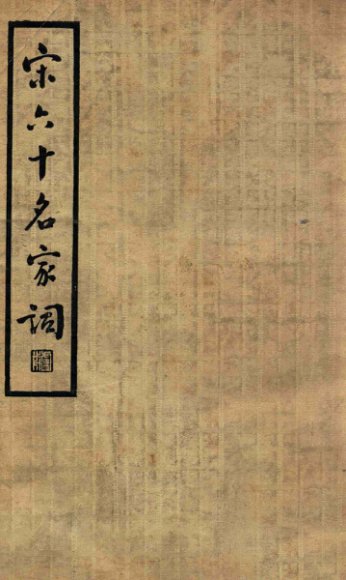 宋六十名家词